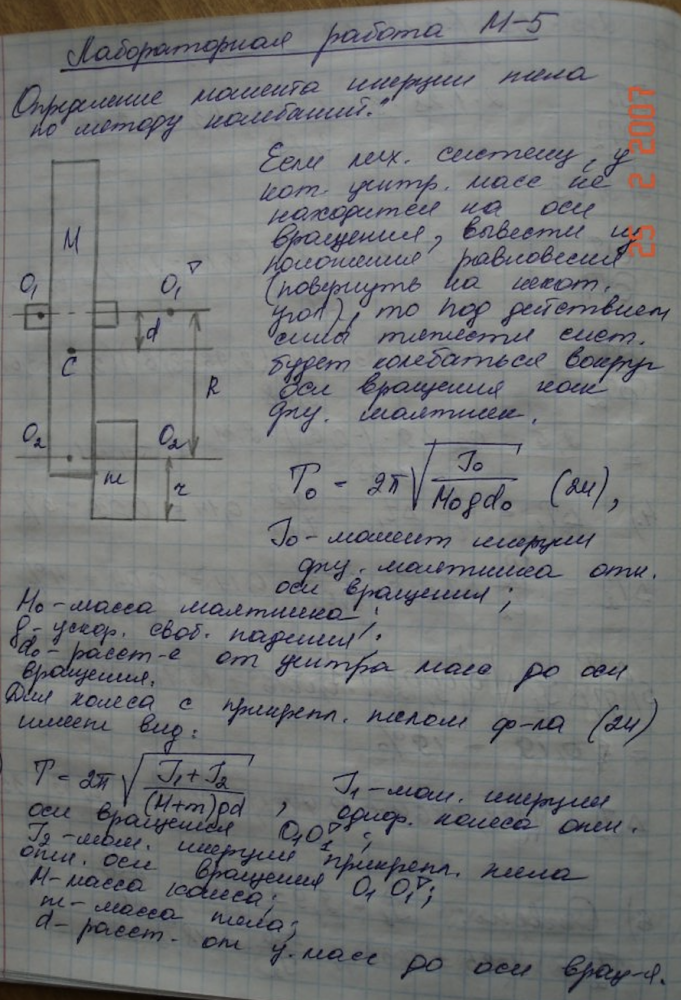 Лабораторная работа М-5
Определение момента инерции тела
по методу колебаний."
25 2 2007
Если мех. систему, у
кот. центр. масс не
находится на оси
вращения, вывести из
положения равновесия
(повернуть на некот.
угол), то под действием
силы тяжести сист.
будет колебаться вокруг
оси вращения как
физ. маятник.
M
O₁ O₁'
d
C
R
O₂ O₂
m
r
T₀ = 2π√(J₀/(M₀gd₀)) (24),
J₀ - момент инерции
физ. маятника отн.
оси вращения;
M₀ - масса маятника;
g - ускор. своб. падения;
d₀ - расст-е от центра масс до оси
вращения.
Для колеса с прикрепл. телом ф-ла (24)
имеет вид:
T = 2π√((J₁+J₂)/((M+m)gd)), J₁ - мом. инерции
одпор. колеса отн.
оси вращения O₁O₁';
J₂ - мом. инерции прикрепл. тела
отн. оси вращения O₁O₁';
M - масса колеса;
m - масса тела;
d - расст. от ц. масс до оси вращ-я.